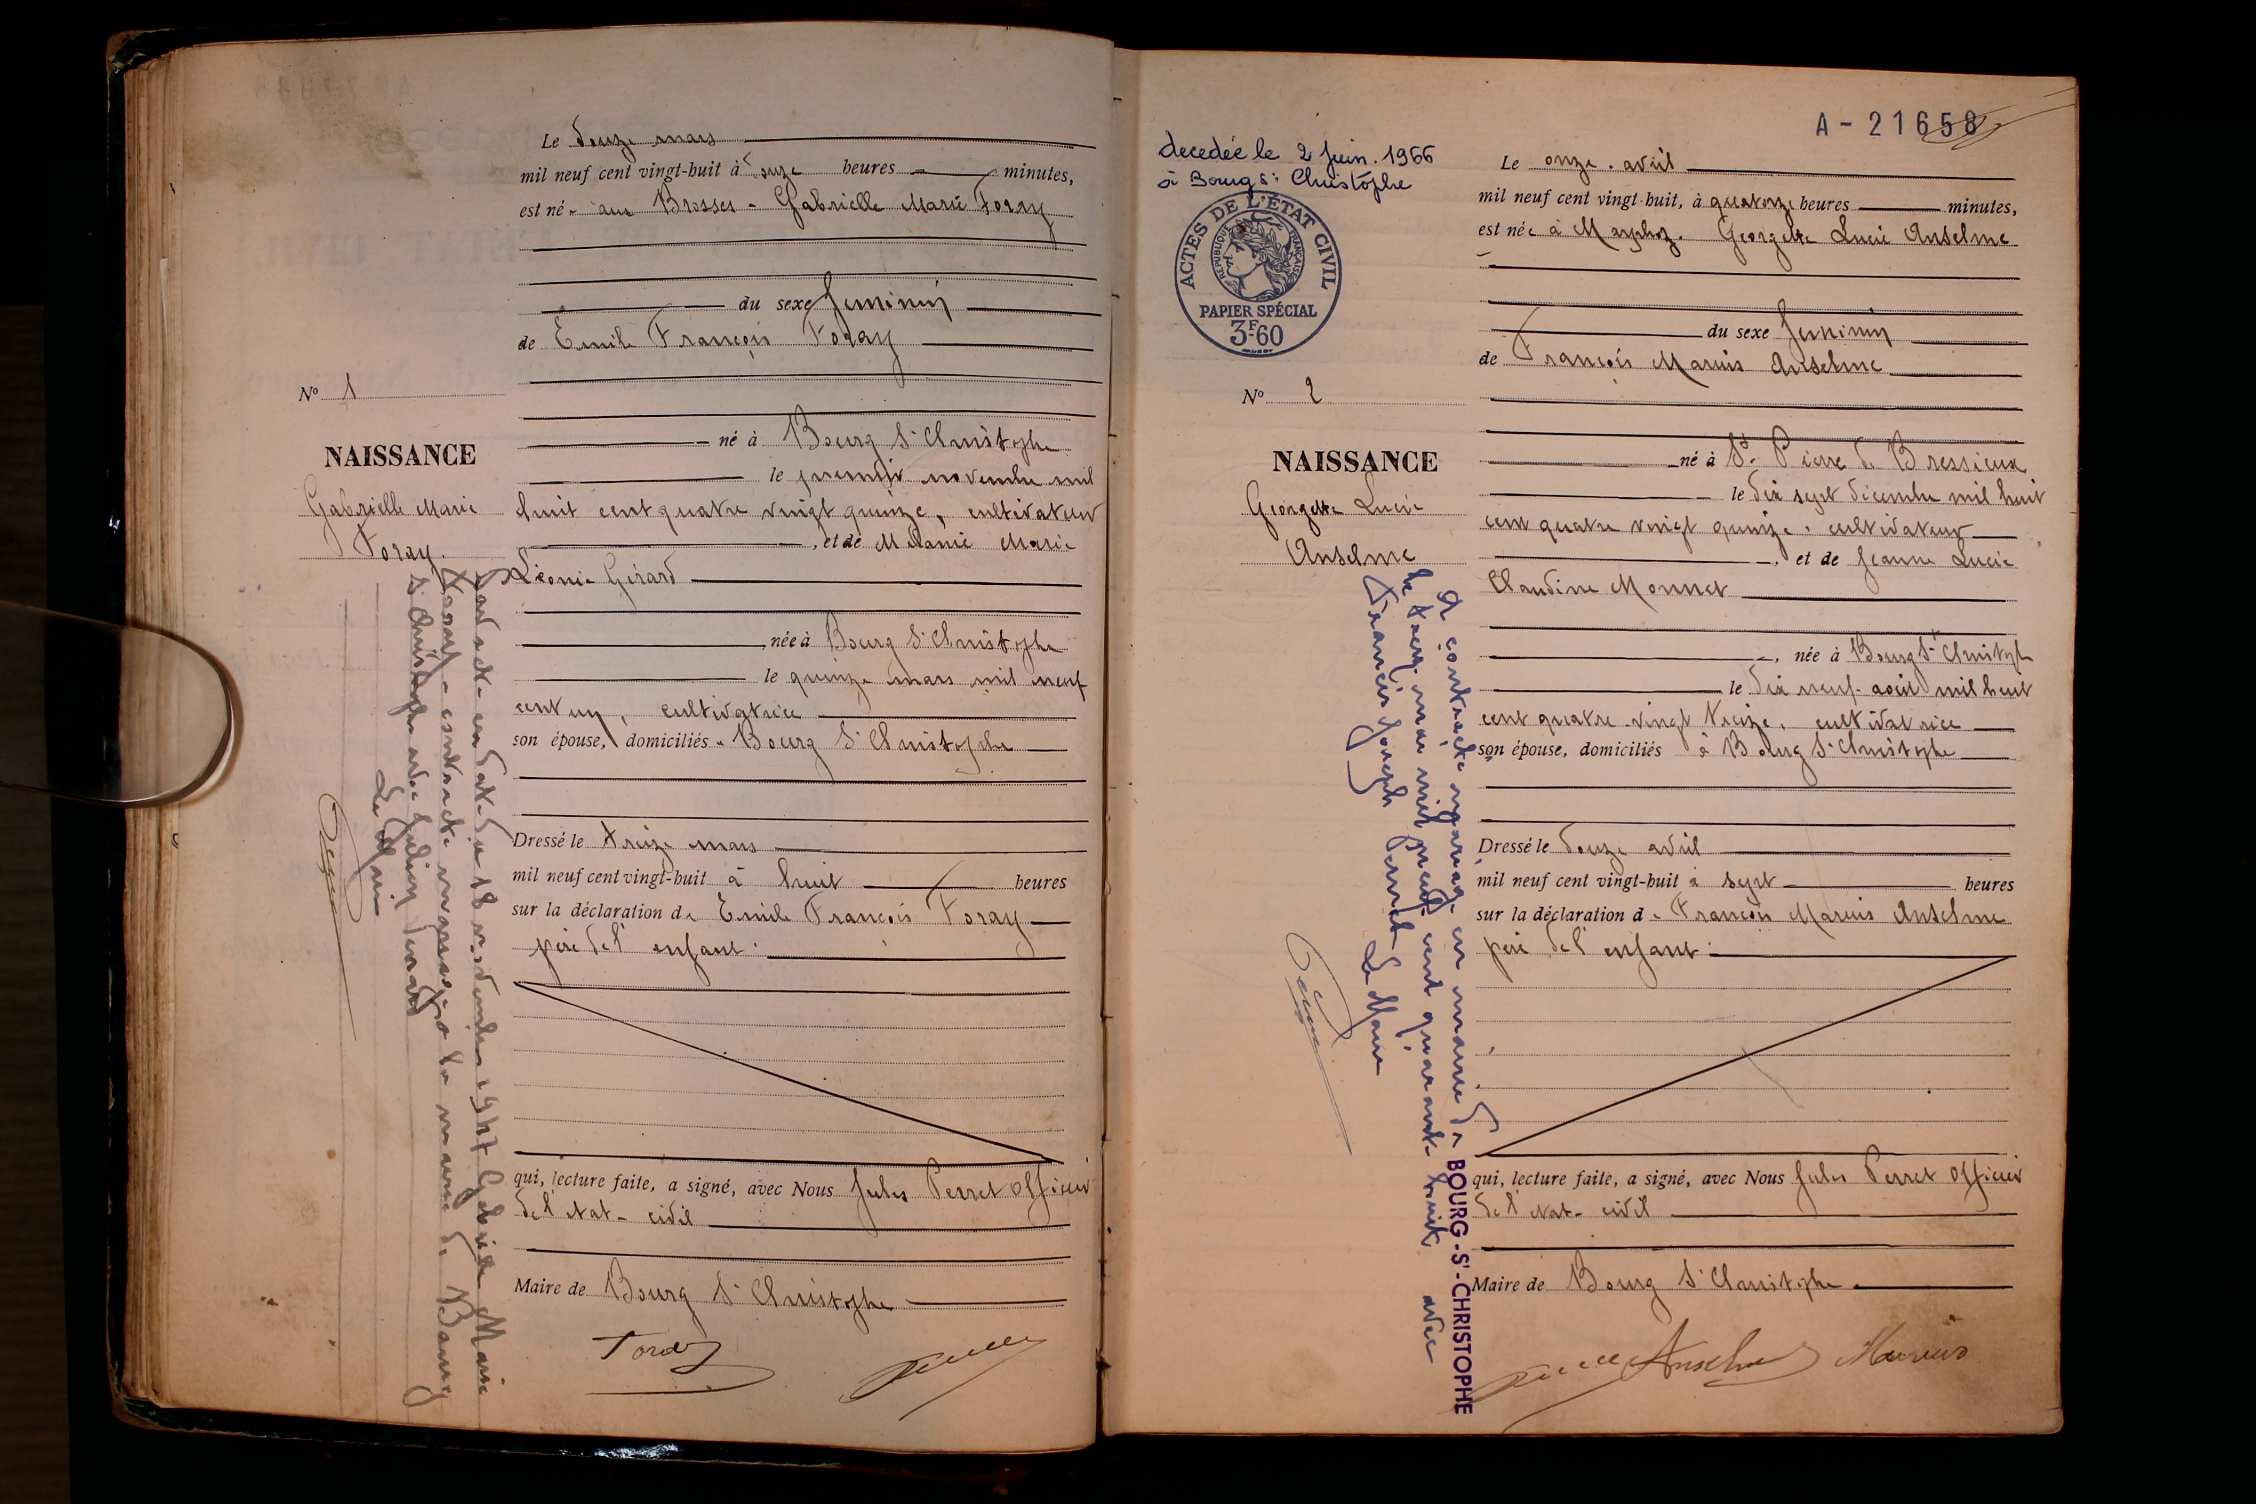 Le douze mars
mil neuf cent vingt-huit à onze heures minutes,
est né - aux Brosses - Gabrielle Marie Foray
du sexe féminin
de Emile François Foray
No 1
né à Bourg St Christophe
NAISSANCE
le premier novembre mil
Gabrielle Marie
huit cent quatre vingt quinze, cultivateur
Foray.
, et de Mélanie Marie
Léonie Gérard
, née à Bourg St Christophe
le quinze mars mil neuf
cent un, cultivatrice
son épouse, domiciliés - Bourg St Christophe
Dressé le treize mars
mil neuf cent vingt-huit à huit heures
sur la déclaration de Emile François Foray
père de l'enfant.
qui, lecture faite, a signé, avec Nous Jules Perret Officier
de l'état-civil
Maire de Bourg St Christophe
Foray
Perret
Par acte en date du 18 novembre 1947 Gabrielle Marie
Foray a contracté mariage à la mairie de Bourg
St Christophe avec Julien
Le Maire
A-21658
decedée le 2 Juin. 1966
à Bourg St Christophe
ACTES DE L'ÉTAT CIVIL
RÉPUBLIQUE FRANÇAISE
PAPIER SPÉCIAL
3F60
Le onze avril
mil neuf cent vingt-huit, à quatorze heures minutes,
est née à Marphoz. Georgette Lucie Anselme
du sexe féminin
de François Marius Anselme
No 2
né à St. Pierre de Bressieux
NAISSANCE
le dix sept décembre mil huit
Georgette Lucie
cent quatre vingt quinze. cultivateur
Anselme
, et de Jeanne Lucie
Claudine Monnet
, née à Bourg St Christophe
le dix neuf août mil huit
cent quatre-vingt treize, cultivatrice
son épouse, domiciliés à Bourg St Christophe
Dressé le douze avril
mil neuf cent vingt-huit à sept heures
sur la déclaration de François Marius Anselme
père de l'enfant.
qui, lecture faite, a signé, avec Nous Jules Perret Officier
de l'état-civil
Maire de Bourg St Christophe.
Perret Anselme Marius
A contracté mariage en mairie de BOURG-St-CHRISTOPHE
le treize mai mil neuf cent quarante huit avec
Francis Joseph Perret Le Maire